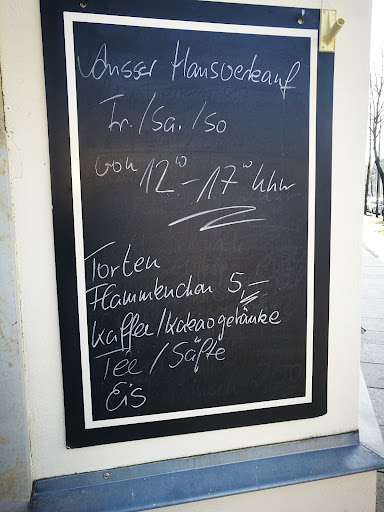 Ausser Hausverkauf
Fr./Sa./So
von 12⁰⁰-17⁰⁰ Uhr
Torten
Flammkuchen 5,-
Kaffee/Kakaogetränke
Tee/Säfte
Eis